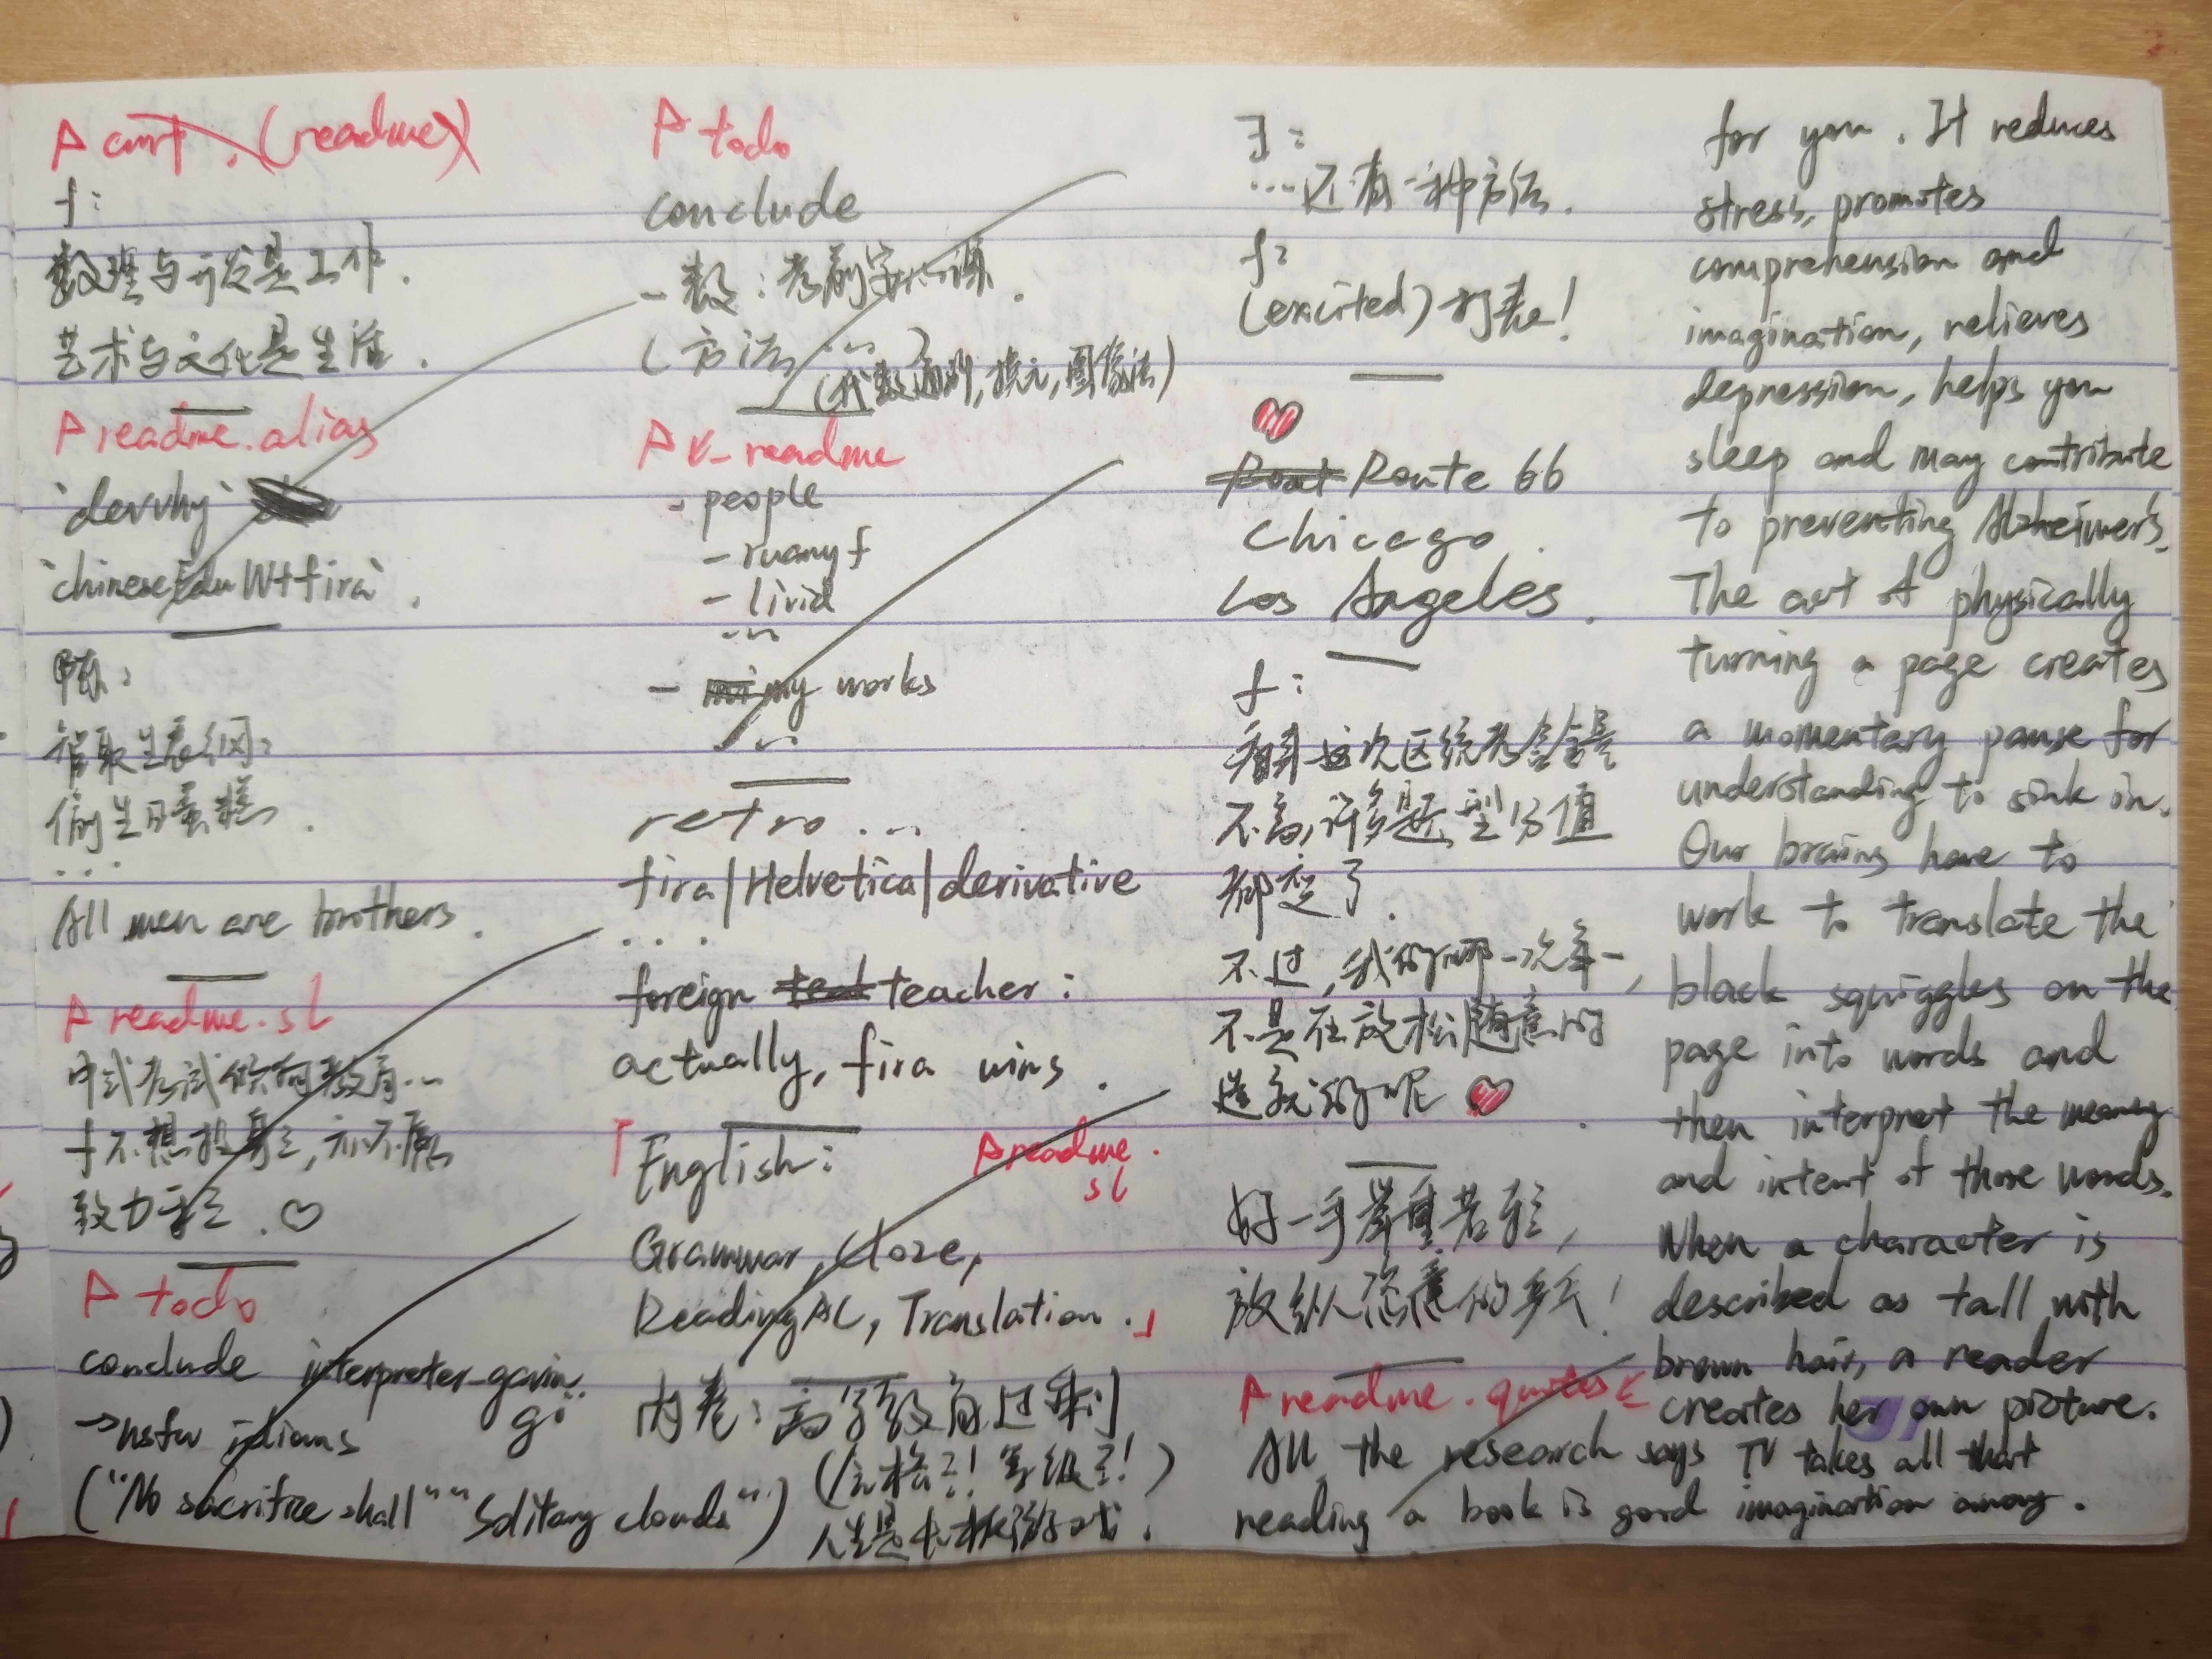 A cmt. (readme)
f:
数理与开发是工作.
艺术与文化是生活.
A readme.alias
`devvhy`
`chineseEduWtfira`.
偷生日蛋糕.
...
All men are brothers.
A readme.sl
中式考试倾向教育...
f不想投身之,亦不愿
致力于之.
A todo
conclude interpreter-gavin.
go
→nsfw idioms
("No sacrifice shall" "Solitary clouds")
A todo
conclude
- 数:
(方法 ... )
(代数通则,换元,图像法)
A v-readme
- people
- ruanyf
- livid
...
- my works
...
retro ...
fira|Helvetica|derivative
...
foreign teacher:
actually, fira wins.
「English:
A readme.
sl
Grammar, cloze,
ReadingAC, Translation.」
内卷:
(等级了!)
ヨ:
...还有一种方法.
f:
(excited) 打表!
Route 66
Chicago.
Los Angeles.
f:
这次区统考含金量
不高,许多题型分值
都变了.
不过,我的哪一次第一,
不是在放松随意的
造就的呢
好一手举重若轻,
放纵恣意的
A readme.quotes
All the research says
reading a book is good
for you. It reduces
stress, promotes
comprehension and
imagination, relieves
depression, helps you
sleep and may contribute
to preventing Alzheimer's.
The act of physically
turning a page creates
a momentary pause for
understanding to sink in.
Our brains have to
work to translate the
black squiggles on the
page into words and
then interpret the meaning
and intent of those words.
When a character is
described as tall with
brown hair, a reader
creates her own picture.
TV takes all that
imagination away.